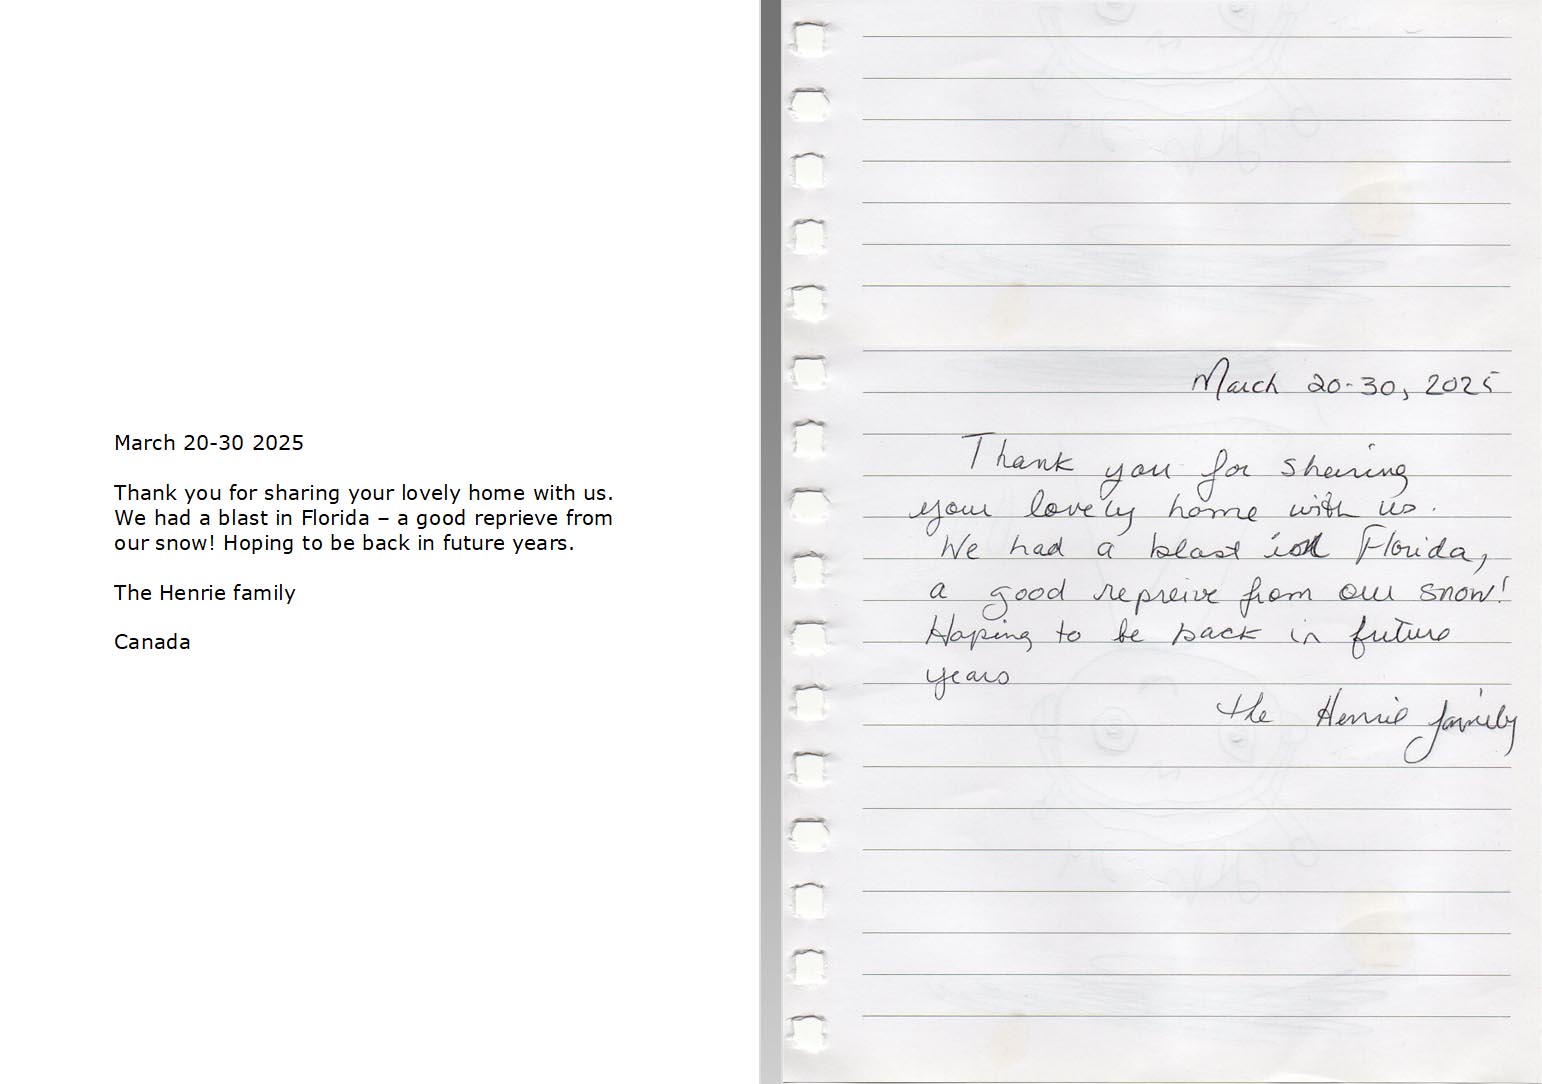 March 20-30 2025
Thank you for sharing your lovely home with us.
We had a blast in Florida – a good reprieve from
our snow! Hoping to be back in future years.
The Henrie family
Canada
March 20-30, 2025
Thank you for sharing
your lovely home with us.
We had a blast in Florida,
a good repreive from our snow!
Hoping to be back in future
years
the Henrie family